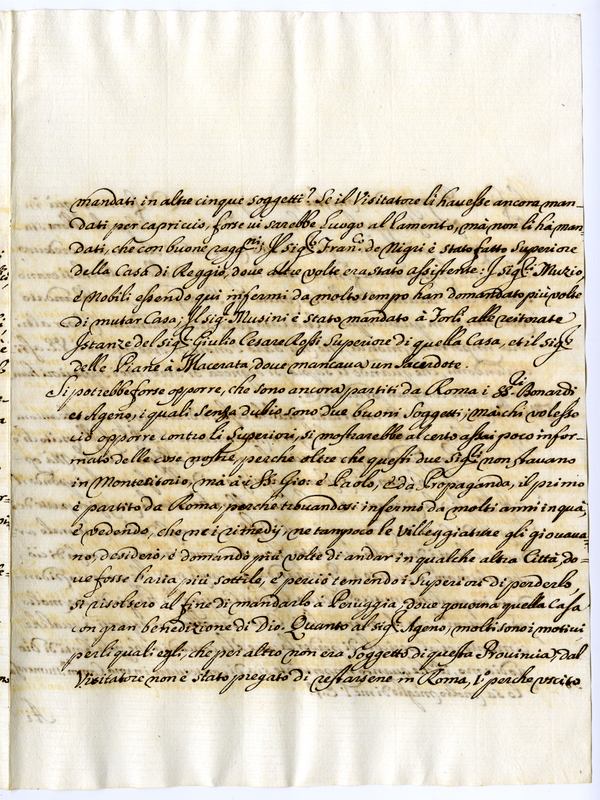 mandati in altre cinque soggetti? Se il Visitatore li havesse ancora man-
dati per capriccio, forse vi sarebbe luogo al lamento, mà non li hà man
dati, che con buone ragg.ni; Il sig.r Fran.co de Nigri è stato fatto Superiore
della Casa di Reggio, dove altre volte era stato assistente: I Sig.ri Muzio,
è Nobili essendo qui infermi da molto tempo han domandato più volte
di mutar Casa; Il sig.r Musini è stato mandato à Forlì alle reiterate
Istanze del sig.r Giulio Cesare Rossi Superiore di quella Casa, et il sig.r
delle Piane à Macerata, dove mancava un Sacerdote.
Si potrebbe forse opporre, che sono ancora partiti da Roma i SS.ri Bonardi
et Ageno, i quali senza dubio sono due buoni Soggetti; mà chi volesse
ciò opporre contro li Superiori, si mostrarebbe al certo assai poco infor-
mato delle cose nostre, perche oltre che questi due Sig.ri non stavano
in Montecitorio, mà à i SS. Gio: è Paolo, è dà Propaganda, il primo
è partito da Roma, perche trovandosi infermo da molti anni in quà,
è vedendo, che ne i rimedij, ne tampoco le Villeggiature gli giovava-
no, desiderò, è domandò più volte di andar in qualche altra Città, do-
ve fosse l'aria più sottile, è perciò temendo i Superiori di perderlo,
si risolsero al fine di mandarlo à Peruggia, dove governa quella Casa
con gran benedizione di Dio. Quanto al sig.r Ageno, molti sono i motivi
per li quali egli, che per altro non era Soggetto di questa Provincia, dal
Visitatore non è stato pregato di restarsene in Roma, 1.o perche uscito